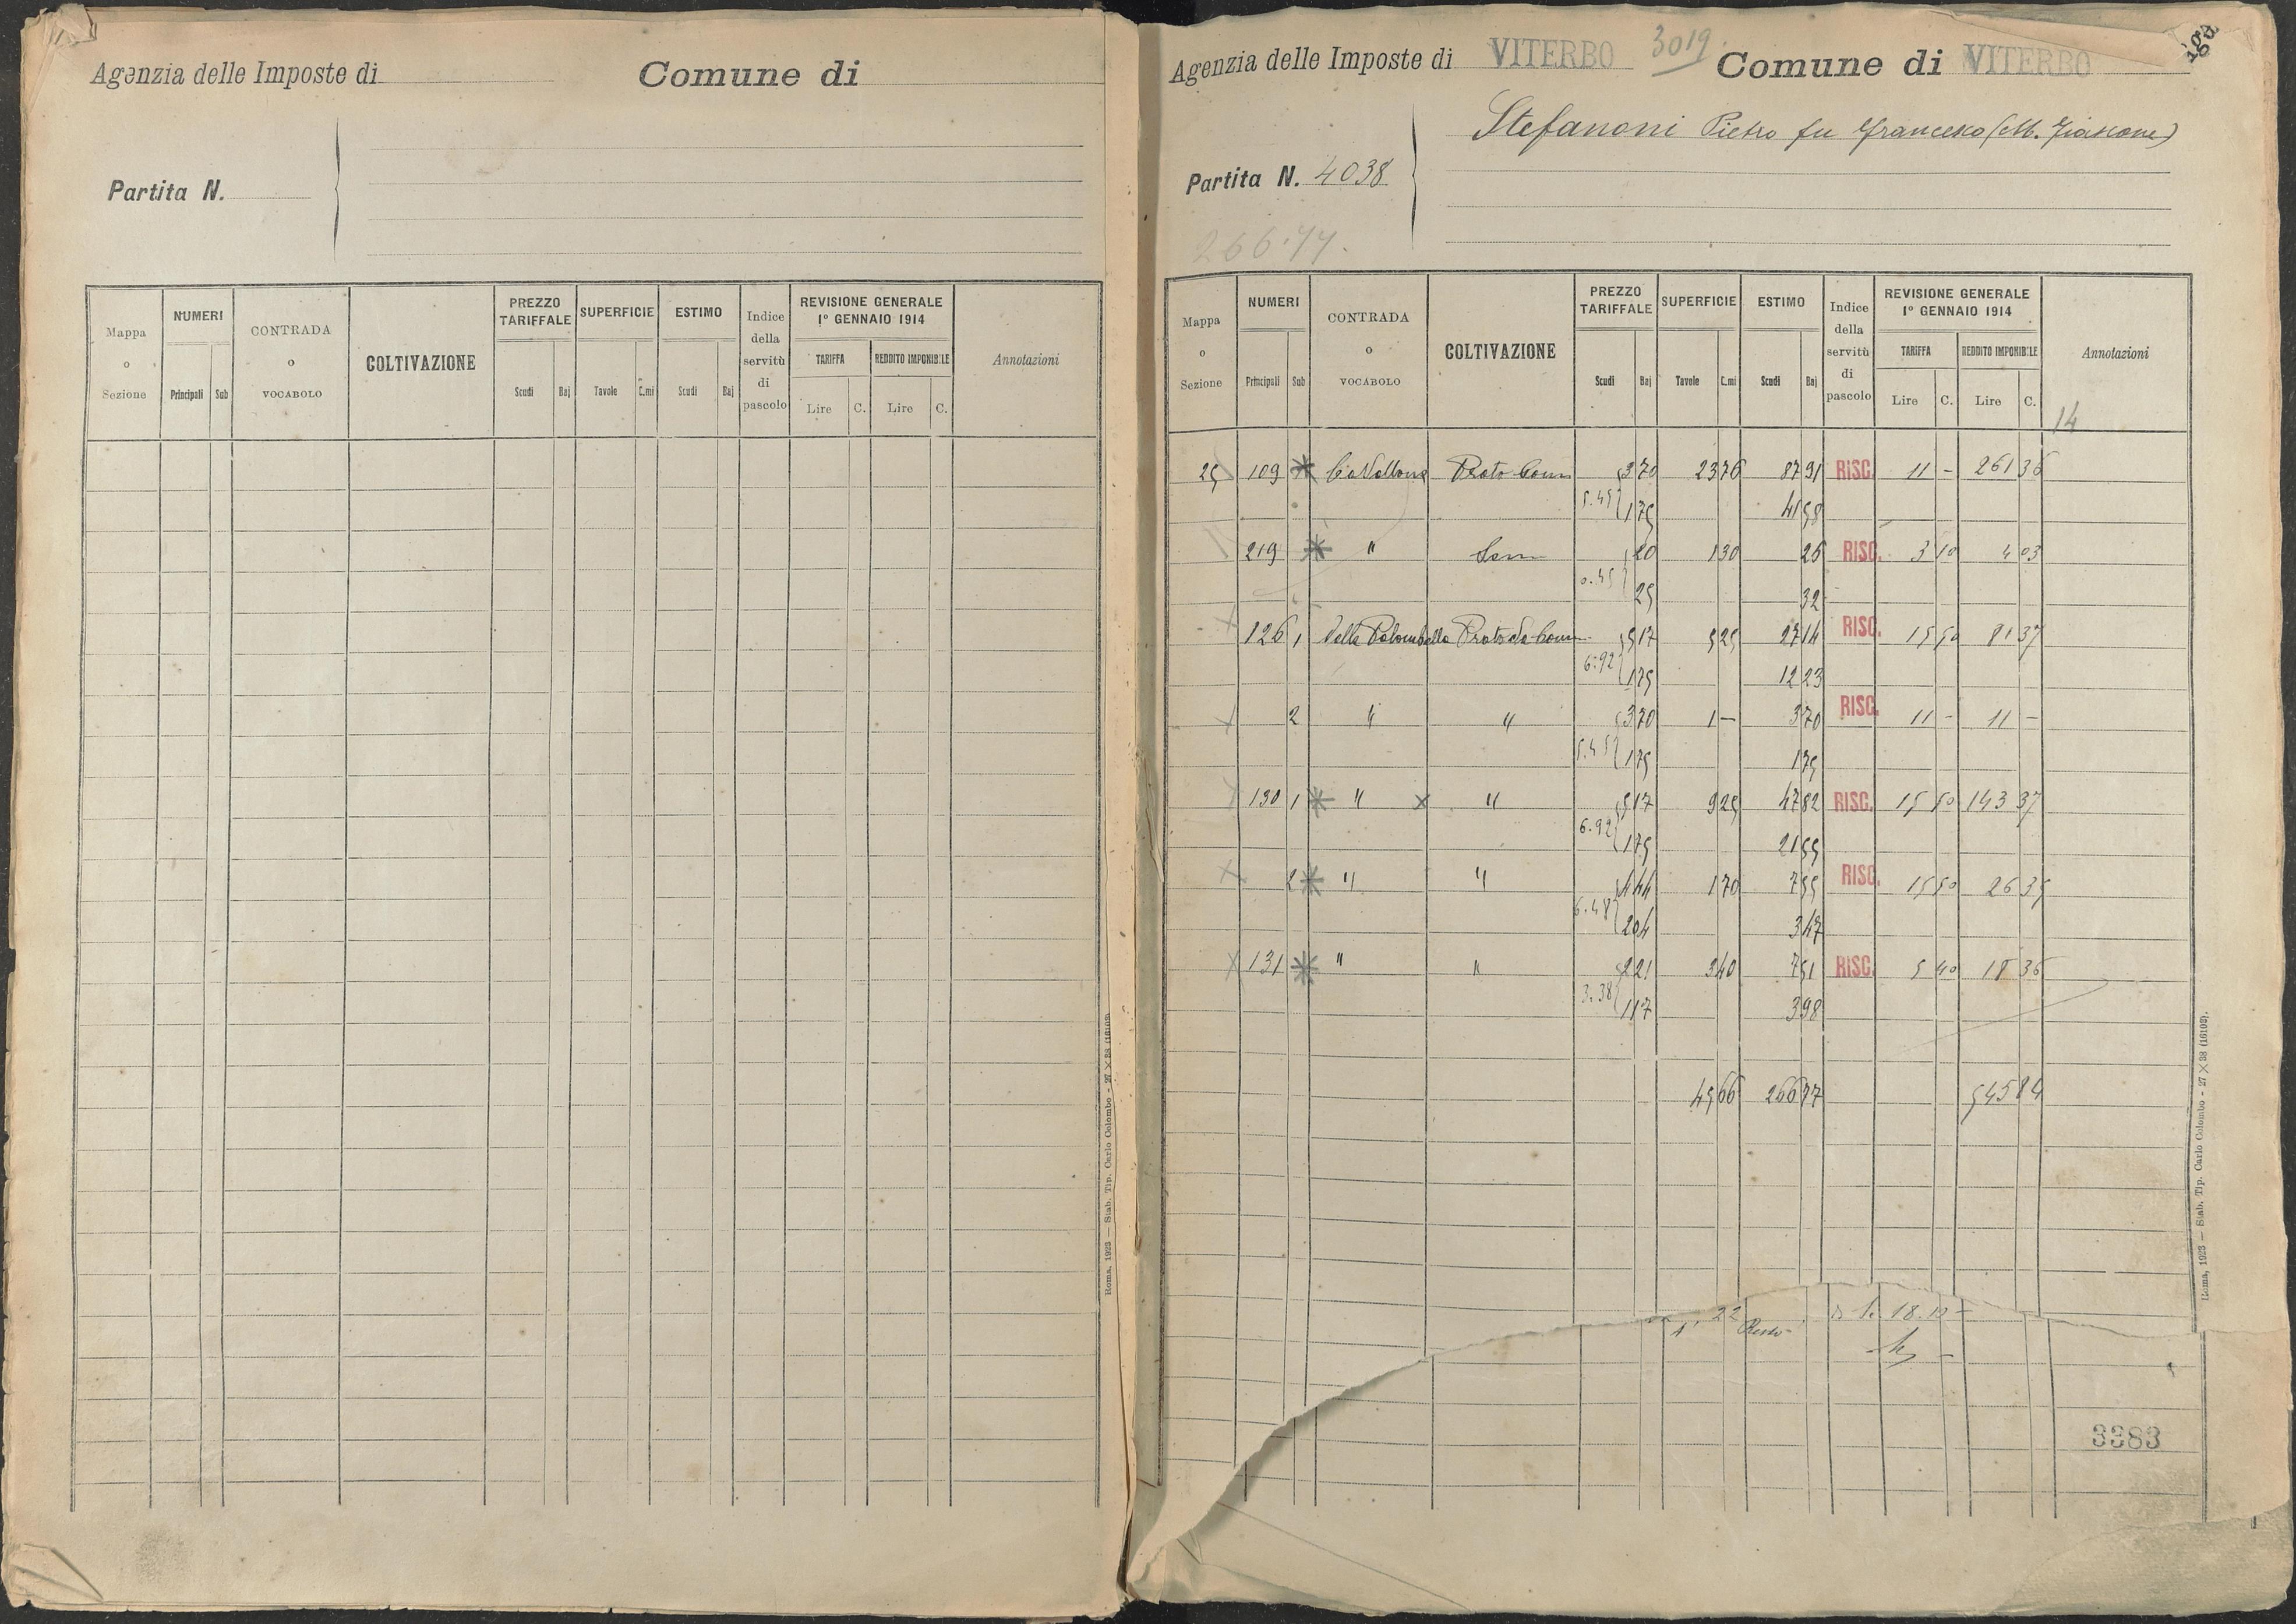 Agenzia delle Imposte di
Comune di
Partita N.
Mappa o Sezione
NUMERI
Principali Sub
CONTRADA o VOCABOLO
COLTIVAZIONE
PREZZO TARIFFALE
Scudi Baj
SUPERFICIE
Tavole C.mi
ESTIMO
Scudi Baj
Indice della servitù di pascolo
REVISIONE GENERALE
1° GENNAIO 1914
TARIFFA
Lire C.
REDDITO IMPONIBILE
Lire C.
Annotazioni
Roma, 1923 — Stab. Tip. Carlo Colombo - 27 × 38 (16103).
Agenzia delle Imposte di VITERBO 3019
Comune di VITERBO
Stefanoni Pietro fu Francesco
Partita N. 4038
266.77.
Mappa o Sezione
NUMERI
Principali Sub
CONTRADA o VOCABOLO
COLTIVAZIONE
PREZZO TARIFFALE
Scudi Baj
SUPERFICIE
Tavole C.mi
ESTIMO
Scudi Baj
Indice della servitù di pascolo
REVISIONE GENERALE
1° GENNAIO 1914
TARIFFA
Lire C.
REDDITO IMPONIBILE
Lire C.
Annotazioni
14
25 109 Prato 3 70 23 76 87 91 RISC. 11 - 261 36
5.45 1 75 41 58
219 " Sem 20 1 30 26 RISC. 3 10 4 03
0.45 25 32
126 1 della Palombella Prato 5 17 5 25 27 14 RISC. 15 50 81 37
6.92 1 75 12 23
2 " " 3 70 1 - 3 70 RISC. 11 - 11 -
5.45 1 75 1 75
130 1 " x " 5 17 9 25 47 82 RISC. 15 50 143 37
6.92 1 75 21 55
2 " " 4 44 1 70 7 55 RISC. 15 50 26 35
6.48 2 04 3 47
131 " " 2 21 3 40 7 51 RISC. 5 40 18 36
3.38 1 17 3 98
45 66 266 77 545 84
22
3383
Roma, 1923 — Stab. Tip. Carlo Colombo - 27 × 38 (16103).